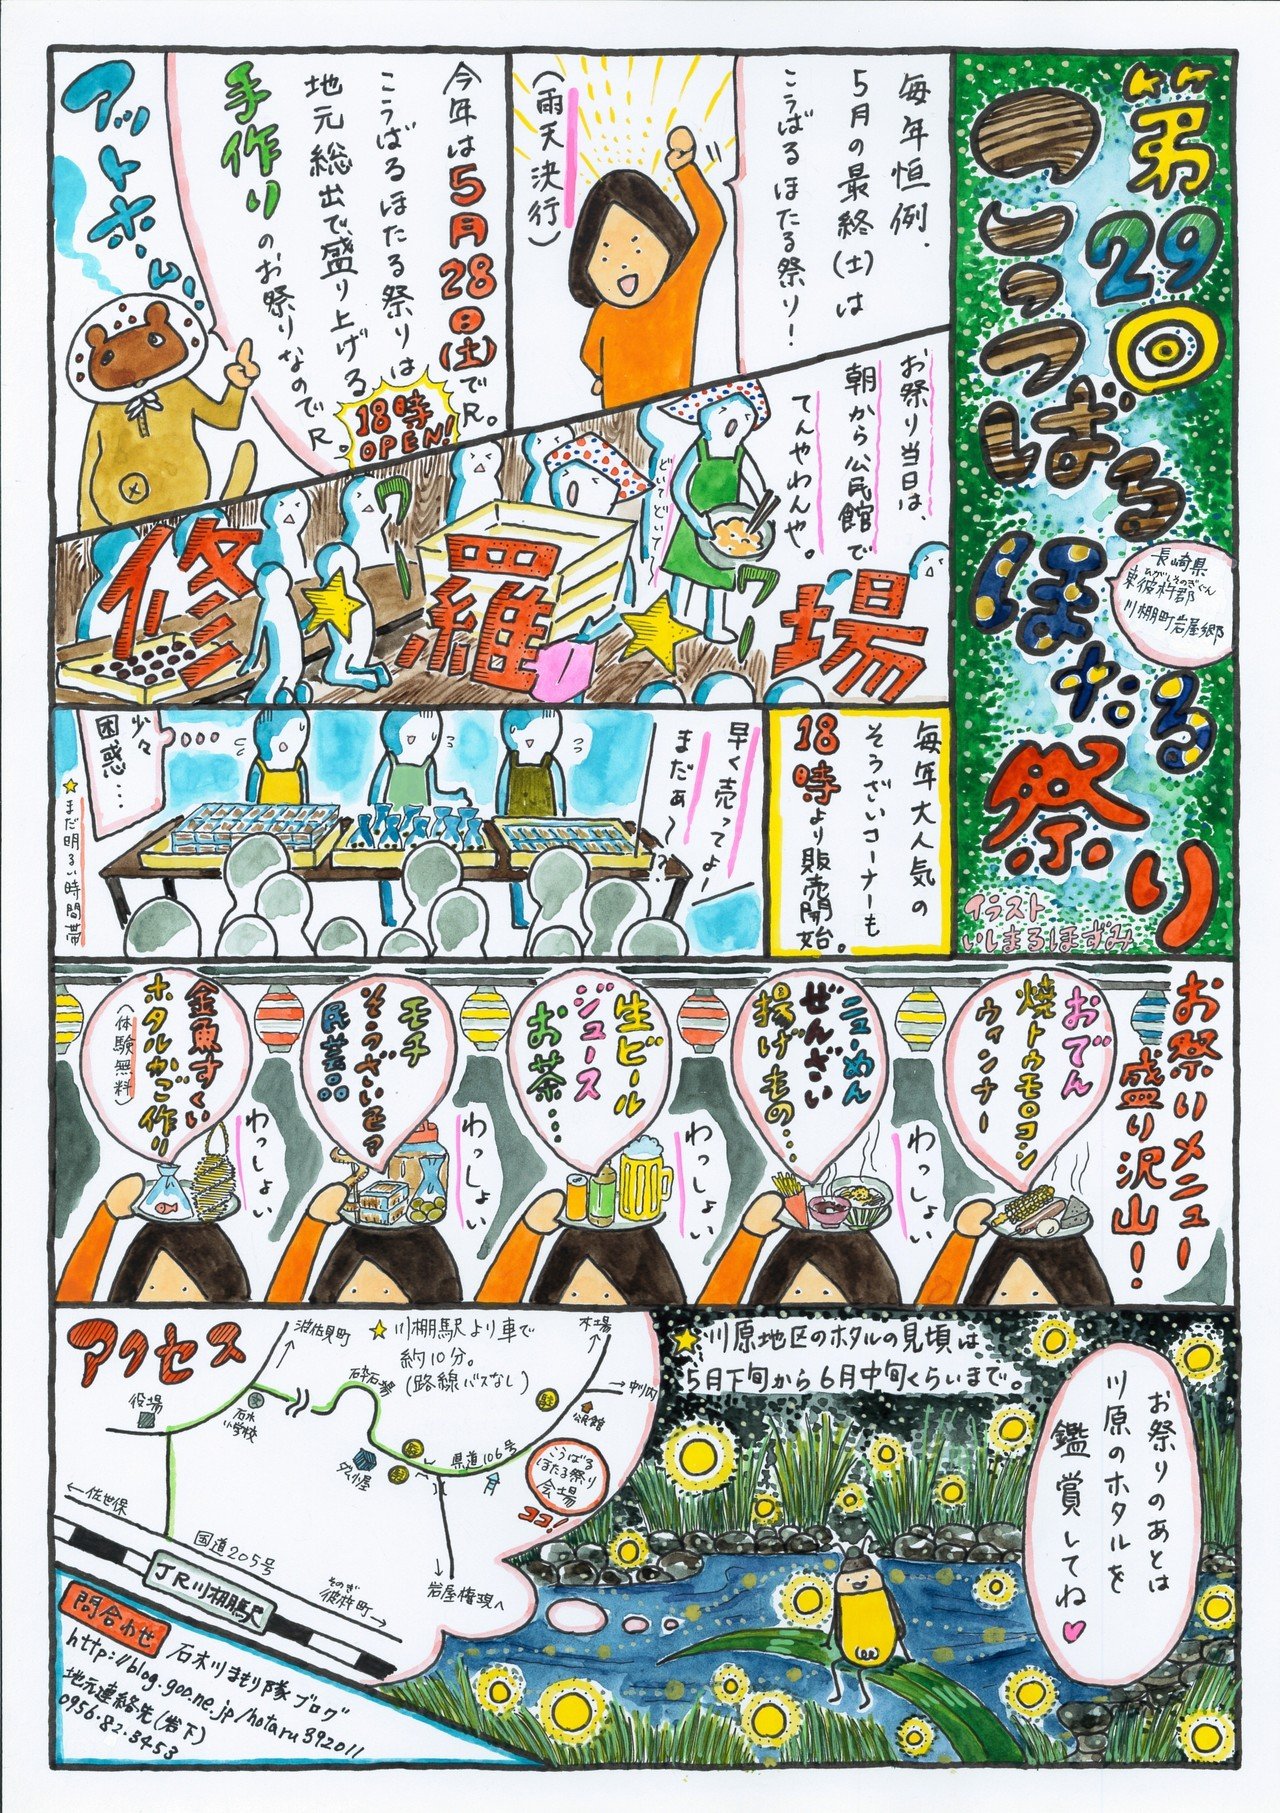 第29回
こうばる
ほたる
祭り
長崎県
ひがしそのぎぐん
東彼杵郡
川棚町岩屋郷
イラスト
いしまるほずみ
毎年恒例、
5月の最終(土)は
こうばるほたる祭り!
(雨天決行)
今年は5月28日(土)でR。
こうばるほたる祭りは
地元総出で、盛り上げる
手作りのお祭りなのでR。
18時
OPEN!
アットホーム
お祭り当日は、
朝から公民館で
てんやわんや。
どいてどいて〜
修羅場
毎年大人気の
そうざいコーナーも
18時より販売開始。
早く売ってよー
まだぁ〜!?
少々
困惑…
★まだ明るい時間帯
お祭りメニュー
盛り沢山!
おでん
焼トウモロコシ
ウィンナー
わっしょい
ニューめん
ぜんざい
揚げもの…
わっしょい
生ビール
ジュース
お茶…
わっしょい
モチ
そうざい色々
民芸品
わっしょい
金魚すくい
ホタルかご作り
(体験無料)
わっしょい
アクセス
★川棚駅より車で
約10分。
(路線バスなし)
波佐見町
木場
役場
石木
小学校
砕石場
中川内
公民館
ダム小屋
県道106号
こうばる
ほたる祭り
会場
ココ!
←佐世保
国道205号
そのぎ
彼杵町→
岩屋権現へ
JR川棚駅
問合わせ
石木川まもり隊ブログ
http://blog.goo.ne.jp/hotaru392011
地元連絡先(岩下)
0956・82・3453
★川原地区のホタルの見頃は
5月下旬から6月中旬くらいまで。
お祭りのあとは
川原のホタルを
鑑賞してね♥